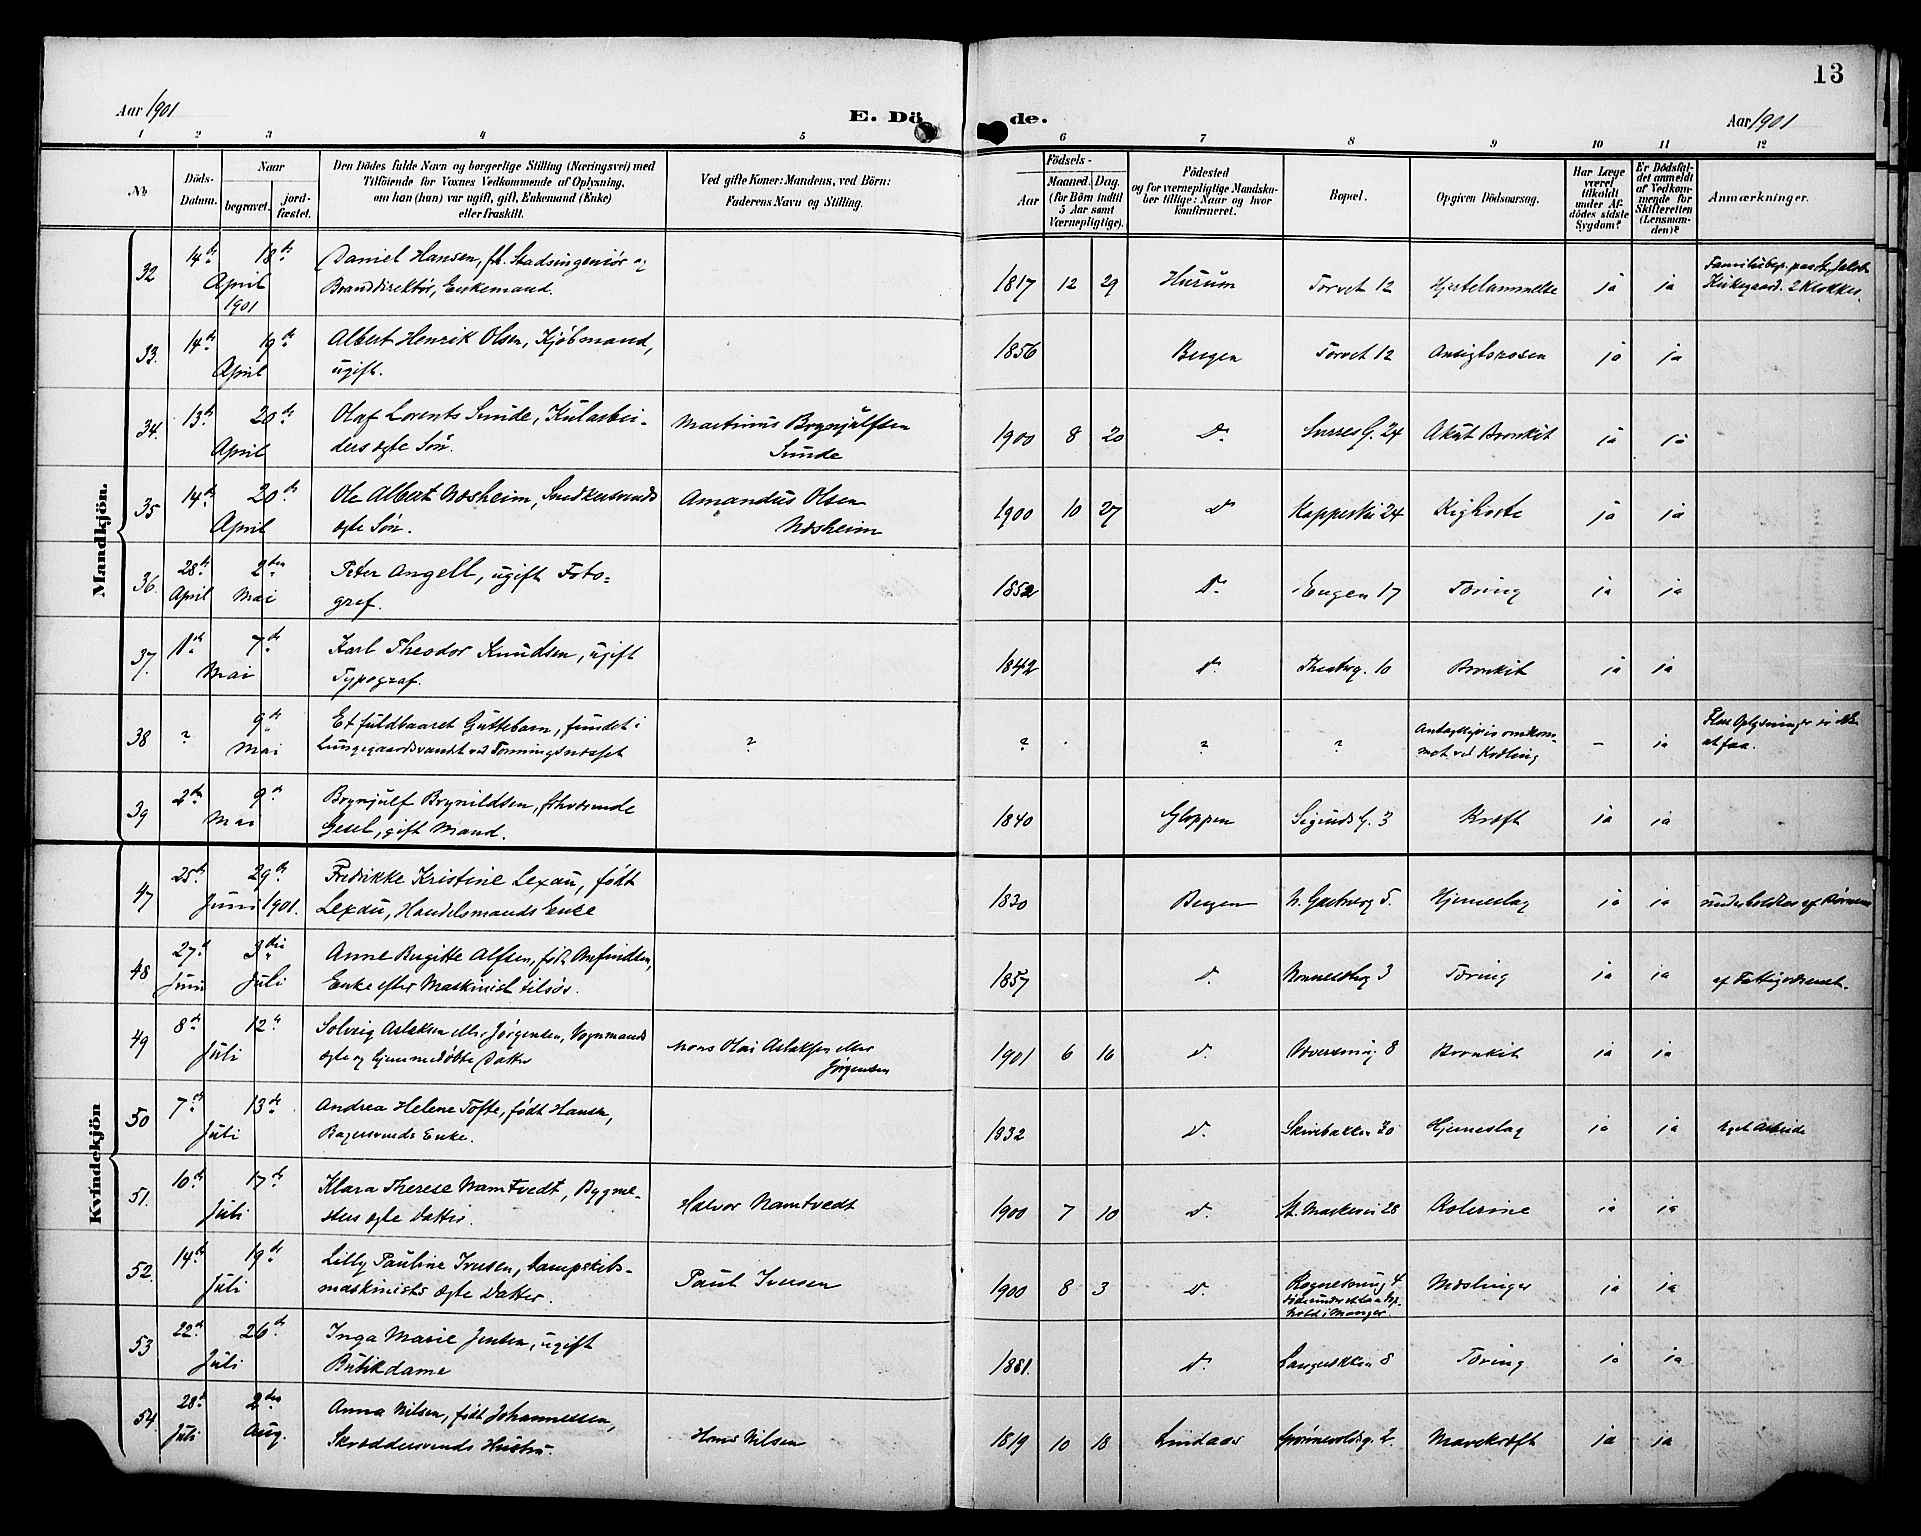 13
Aar 1901
E. Döde.
Aar 1901
1 2 3 4 5 6 7 8 9 10 11 12
No
Döds-Datum.
Naar
begravet. jordfæstet.
Den Dödes fulde Navn og borgerlige Stilling (Næringsvei) med
Tilföiende for Voxnes Vedkommende af Oplysning,
om han (hun) var ugift, gift, Enkemand (Enke)
eller fraskilt.
Ved gifte Koner: Mandens, ved Börn:
Faderens Navn og Stilling.
Födsels-
Aar
Maaned. Dag.
(for Börn indtil
5 Aar samt
Værnepligtige).
Födested
og for værnepligtige Mandska-
ber tillige: Naar og hvor
konfirmeret.
Bopæl.
Opgiven Dödsaarsag.
Har Læge
været
tilkaldt
under Af-
dödes sidste
Sygdom?
Er Dödsfal-
det anmeldt
af Vedkom-
mende for
Skifteretten
(Lensman-
den)?
Anmærkninger.
Mandkjön.
32 14de 18de Daniel Hansen, fh. Stadsingeniør og
April 1901 Branddirektør, Enkemand. 1817 12 29 Hurum Torvet 12 Hjertelammelse ja ja
Kirkegaard. 2 Klokker.
33. 14de 19de Albert Henrik Olsen, Kjøbmand,
April ugift. 1856 Bergen Torvet 12 Ansigtsrosen ja ja
34. 13de 20de Olaf Lorents Sunde, Kularbei-
April ders ægte Søn. Martinus Brynjulfsen
Sunde 1900 8 20 Do. 24 Akut Bronkit ja ja
35 14de 20de Ole Albert Næsheim, Snedkersvends
April ægte Søn. Amandus Olsen
Næsheim 1900 10 27 Do 24 Kighoste ja ja
36. 28de 2den Peter Angell, ugift Foto-
April Mai graf. 1852 Do. Engen 17 Tæring ja ja
37. 1ste 7de Karl Theodor Knudsen, ugift
Mai Typograf. 1842 Do. Theaterg. 10 Bronkit ja ja
38 ? 9de Et fuldbaaret Guttebarn, fundet i
Mai Lungegaardsvandet ved ? ? ? ? Antageligvis omkom-
met ved Kvæling – ja Flere Oplysninger ei
at faa.
39 2den 9de Brynjulf Brynildsen, fhværende
Mai Gesel, gift Mand. 1840 Gloppen Sigurds G. 3 Kræft ja ja
Kvindekjön
47 25de 29de Fredrikke Kristine Lexau, født
Juni 1901. Lexau, Handelsmands Enke 1830 Bergen 5. Hjerneslag ja ja underholdtes af Børnene
48 27de 3die Anne Birgitte Alfsen, født Arnfindsen,
Juni Juli Enke efter Maskinist tilsøs. 1857 Do. 3 Tæring ja ja af Fattigvæsenet.
49 8de 12te Solveig Aslaksen eller Jørgensen, Vognmands
Juli ægte og hjemmedøbte Datter Mons Olai Aslaksen eller
Jørgensen 1901 6 16 Do. 8 Bronkit ja ja
50 7de 13de Andrea Helene Tofte, født Hansen,
Juli Bagersvends Enke. 1832 Do. Skivebakken 30 Hjerneslag ja ja eget Arbeide
51. 10de 17de Klara Therese Namtvedt, Bygme-
Juli sters ægte Datter. Halvor Namtvedt 1900 7 10 Do. St. Markevei 28 Kolerine ja ja
52. 14de 19de Lilly Pauline Iversen, Dampskibs-
Juli maskinists ægte Datter. Paul Iversen 1900 8 3 Do. 4 Mæslinger ja ja
døde under et
hold i Manger.
53 22de 26de Inga Marie Jensen, ugift
Juli Butikdame 1881. Do. 8 Tæring ja ja
54. 28de 2den Anna Nilsen, født Johannessen,
Juli Aug. Skræddersvends Hustru. Hans Nilsen 1819 10 18 Lindaas Grønnevoldsg. 2. Mavekræft ja ja